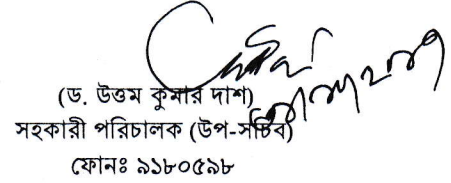 (ড. উত্তম কুমার দাশ)
সহকারী পরিচালক (উপ-সচিব)
ফোনঃ ৯১৮০৫৯৮